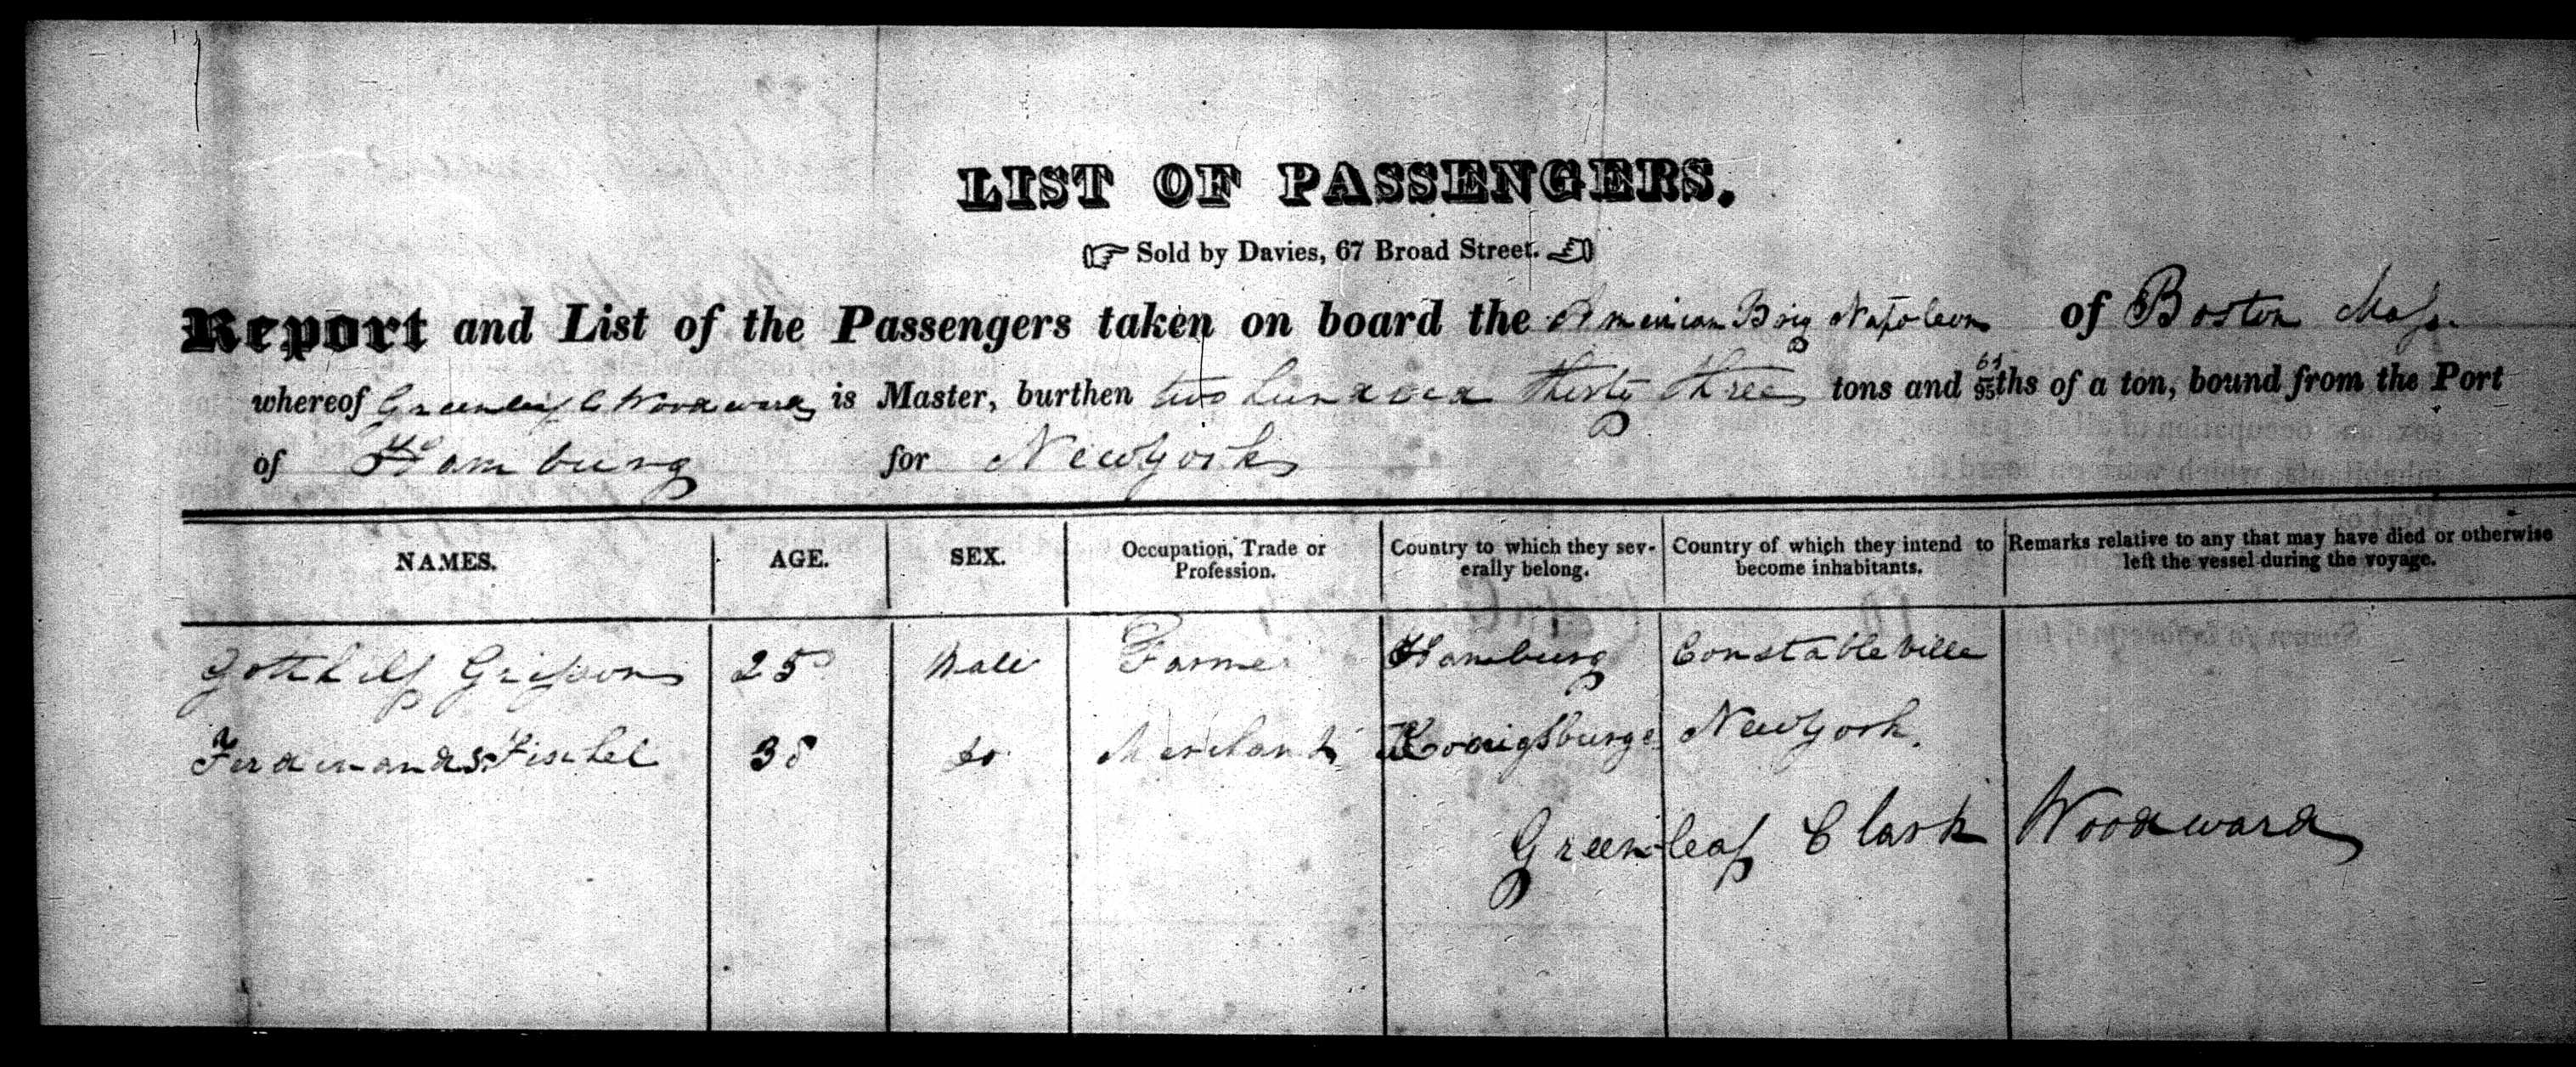 LIST OF PASSENGERS.
Sold by Davies, 67 Broad Street.
Report and List of the Passengers taken on board the American Brig Napoleon of Boston Mass.
whereof Greenleaf C Woodward is Master, burthen two hundred thirty three tons and 64/95ths of a ton, bound from the Port
of Hamburg for New York
NAMES. AGE. SEX. Occupation, Trade or Profession. Country to which they severally belong. Country of which they intend to become inhabitants. Remarks relative to any that may have died or otherwise left the vessel during the voyage.
Gotthilf 25 Male Farmer Hamburg Constableville
Ferdinand Fischel 38 do Merchant Konigsburge New York.
Greenleaf Clark Woodward